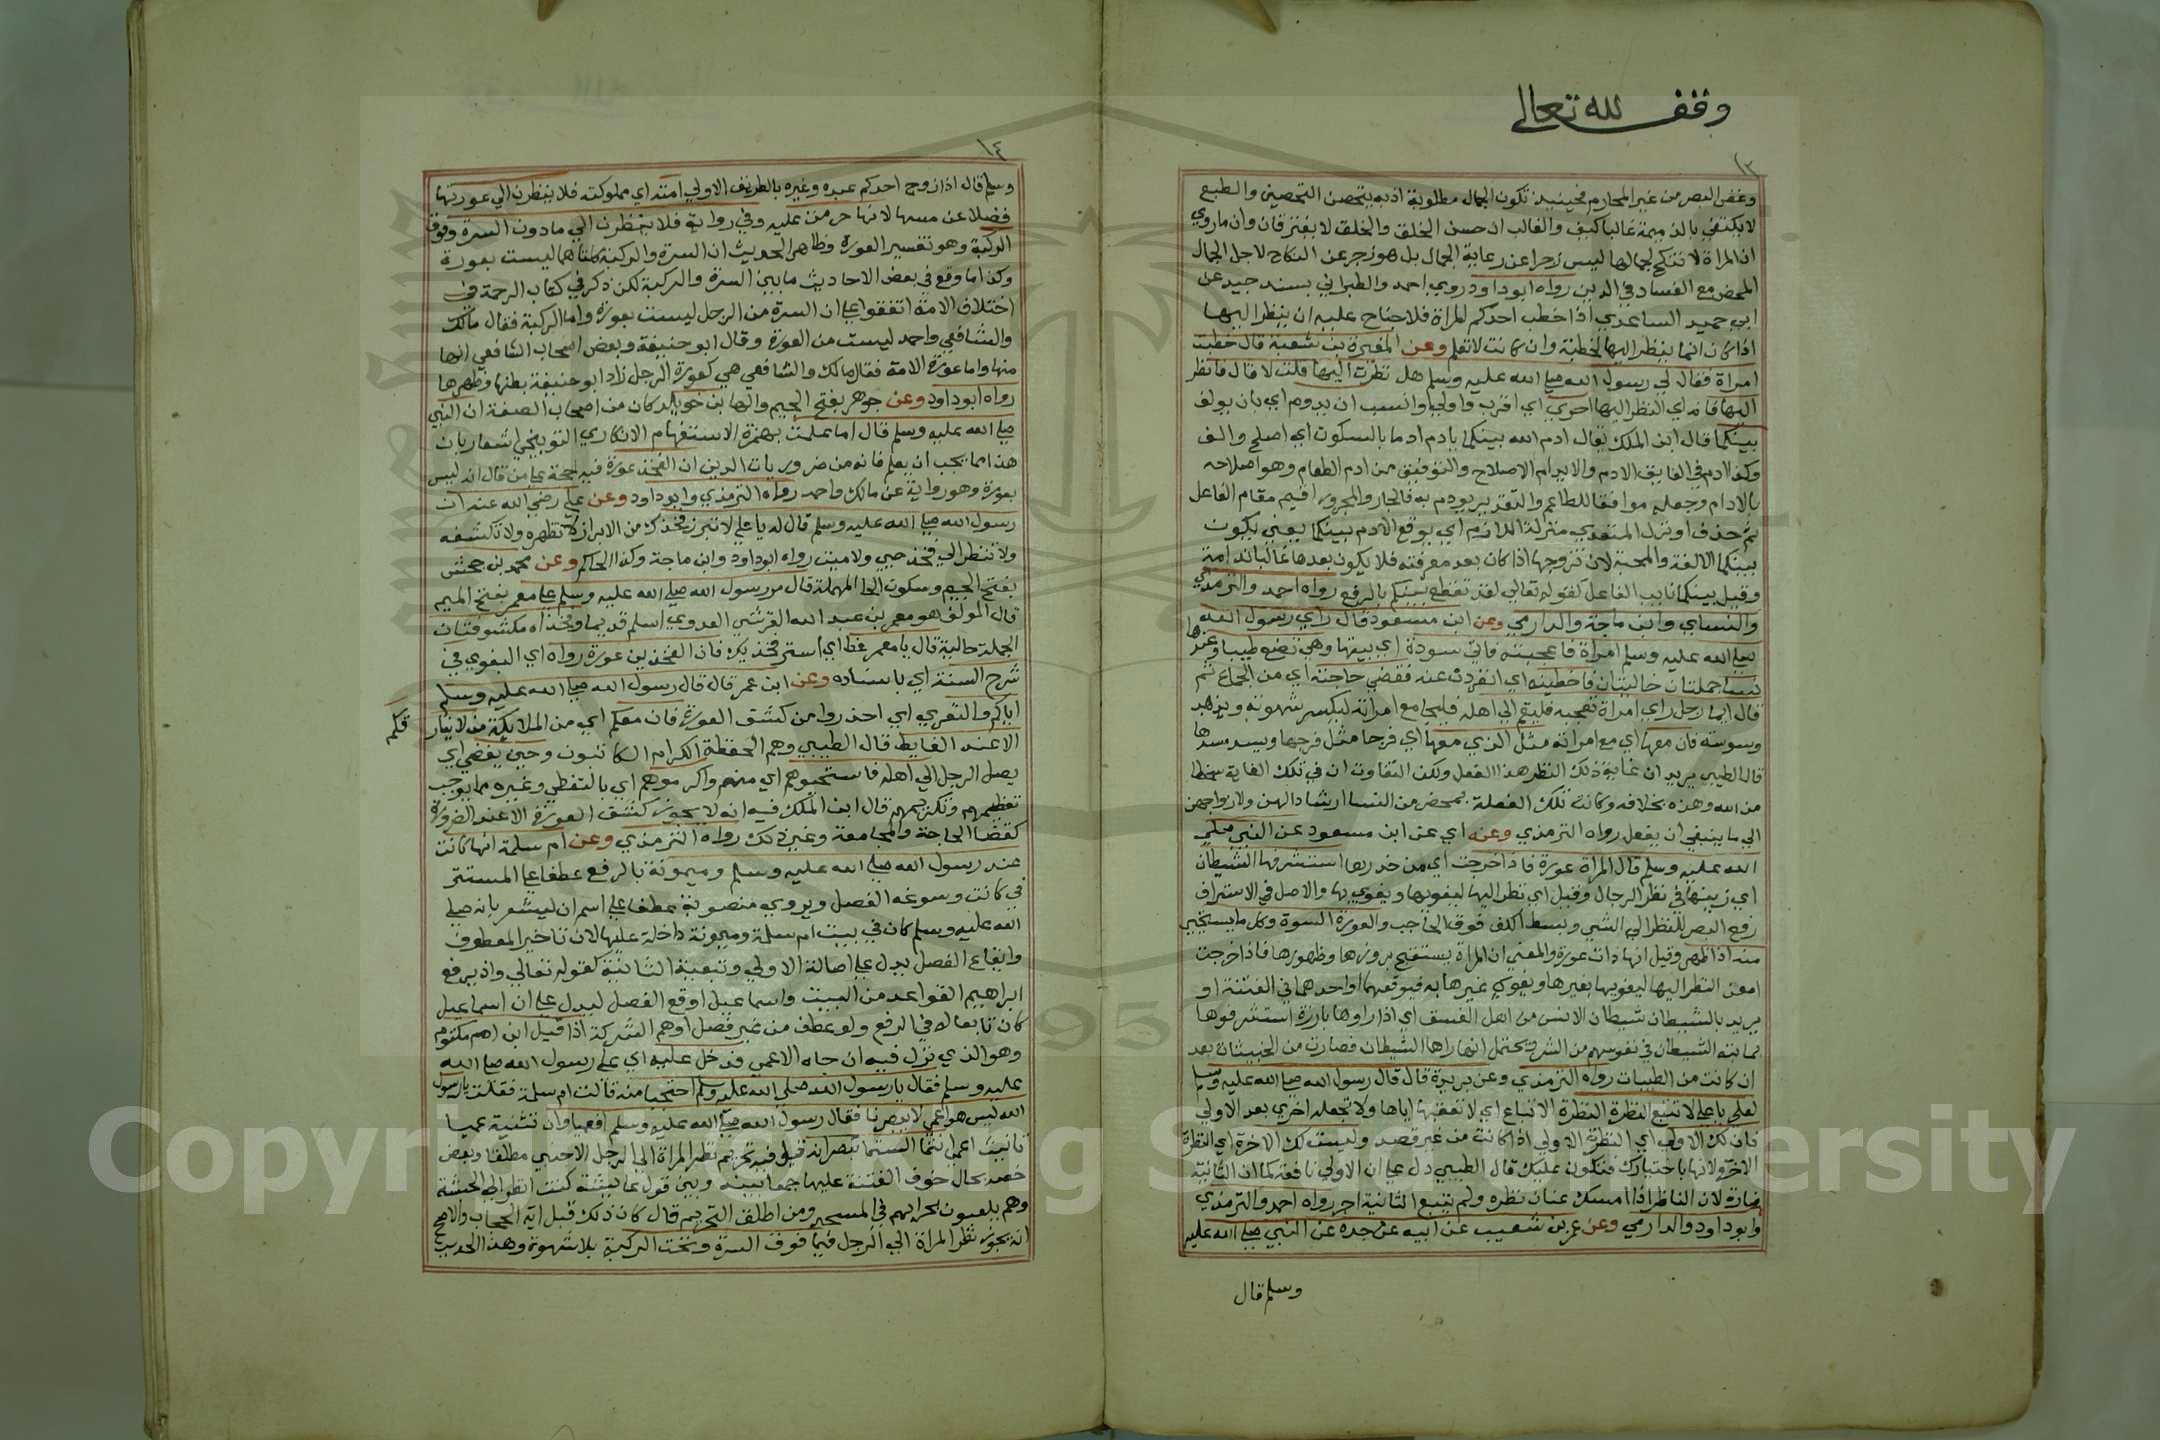 وقف لله تعالى
١٣
وغض البصر من غير المحارم فحينئذ تكون الجمال مطلوبة اذ به يتحصن التحصين والطبع
لا يكتفي بالذميمة غالبا كيف والغالب ان حسن الخلق والخلق لا يفترقان وان ما روي
ان المراة لا تنكح لجمالها ليس زجرا عن رعاية الجمال بل هو زجر عن النكاح لاجل الجمال
المحض مع الفساد في الدين رواه ابو داود روي احمد والطبراني بسند جيد عن
ابي حميد الساعدي اذا خطب احدكم المراة فلا جناح عليه ان ينظر اليها
اذا كان انما ينظر اليها لخطبة وان كانت لا تعلم وعن المغيرة بن شعبة قال خطبت
امراة فقال لي رسول الله صلى الله عليه وسلم هل نظرت اليها قلت لا قال فانظر
اليها فانه اي النظر اليها احري اي اقرب واولي وانسب ان يدوم اي بان يولف
بينكما قال ابن الملك يقال ادم الله بينكما يادم ادما بالسكون اي اصلح والف
وكذا ادم في الفايق الادم والايدام الاصلاح والتوفيق من ادم الطعام وهو اصلاحه
بالادام وجعله موافقا للطاعم والتقدير يودم به فالجار والمجرور اقيم مقام الفاعل
ثم حذف او نزل المتعدي منزلة اللازم اي يوقع الادم بينكما يعني يكون
بينكما الالفة والمحبة لان تزوجها اذا كان بعد معرفته فلا يكون بعدها غالبا ندامة
وقيل بينكما نايب الفاعل كقوله تعالي لقد تقطع بينكم بالرفع رواه احمد والترمذي
والنساي وابن ماجة والدارمي وعن ابن مسعود قال راي رسول الله
صلى الله عليه وسلم امراة فاعجبته فاتي سودة اي بيتها وهي تصنع طيبا وعندها
نسا جملتان حاليتان فاخلينه اي انفردن عنه فقضي حاجته اي من الجماع ثم
قال ايما رجل راي امراة تعجبه فليقم الي اهله فليجامع امراته ليكسر شهوته ويذهب
وسوسته فان معها اي مع امراته مثل الذي معها اي فرجا مثل فرجها ويسد مسدها
قال الطيبي يريد ان غاية ذلك النظر هذا الفعل ولكن التفاوت ان في تلك الغاية سخطا
من الله وهذه بخلافه وكانت تلك الفعلة بمحضر من النسا ارشادا لهن ولازواجهن
الي ما ينبغي ان يفعل رواه الترمذي وعنه اي عن ابن مسعود عن النبي صلى
الله عليه وسلم قال المراة عورة فاذا خرجت اي من خدرها استشرفها الشيطان
اي زينها في نظر الرجال وقيل اي نظر اليها ليغويها ويغوي بها والاصل في الاستشراف
رفع البصر للنظر الي الشي وبسط الكف فوق الحاجب والعورة السوة وكل ما يستحيي
منه اذا ظهر وقيل انها ذات عورة والمعني ان المراة يستقبح بروزها وظهورها فاذا خرجت
امعن النظر اليها ليغويها بغيرها ويغوي غيرها به فيوقعهما او احدهما في الفتنة او
يريد بالشيطان شيطان الانس من اهل الفسق اي اذا راوها بارزة استشرفوها
لما بثه الشيطان في نفوسهم من الشر ويحتمل انه راها الشيطان فصارت من الخبيثات بعد
ان كانت من الطيبات رواه الترمذي وعن بريدة قال قال رسول الله صلى الله عليه وسلم
لعلي يا علي لا تتبع النظرة النظرة الاتباع اي لا تعقبها اياها ولا تجعله اخري بعد الاولي
فان لك الاولي اي النظرة الاولي اذا كانت من غير قصد وليست لك الاخرة اي النظرة
الاخرة لانها باختيارك فتكون عليك قال الطيبي دل علي ان الاولي نافعة كما ان الثانية
ضارة لان الناظر اذا امسك عنان نظره ولم يتبع الثانية اجر رواه احمد والترمذي
وابو داود والدارمي وعن عمر بن شعيب عن ابيه عن جده عن النبي صلى الله عليه
وسلم قال
١٤
وسلم قال اذا زوج احدكم عبده وغيره بالطريق الاولي امته اي مملوكته فلا ينظرن الي عورتها
فضلا عن مسها لانها حرمن عليه وفي رواية فلا ينظرن الي ما دون السرة وفوق
الركبة وهو تفسير العورة وظاهر الحديث ان السرة والركبة كلتاهما ليست بعورة
وكذا ما وقع في بعض الاحاديث ما بين السرة والركبة لكن ذكر في كتاب الرحمة في
اختلاف الامة اتفقوا علي ان السرة من الرجل ليست بعورة واما الركبة فقال مالك
والشافعي واحمد ليست من العورة وقال ابو حنيفة وبعض اصحاب الشافعي انها
منها واما عورة الامة فقال مالك والشافعي هي كعورة الرجل زاد ابو حنيفة بطنها وظهرها
رواه ابو داود وعن جرهد بفتح الجيم والها بن خويلد كان من اصحاب الصفة ان النبي
صلى الله عليه وسلم قال اما علمت بهمزة الاستفهام الانكاري التوبيخي اشعار بان
هذا مما يجب ان يعلم فانه من ضروريات الدين ان الفخذ عورة فيه حجة علي من قال انه ليس
بعورة وهو رواية عن مالك واحمد رواه الترمذي وابو داود وعن علي رضي الله عنه ان
رسول الله صلى الله عليه وسلم قال له يا علي لا تبرز فخذك من الابراز لا تظهره ولا تكشفه
ولا تنظر الي فخذ حي ولا ميت رواه ابو داود وابن ماجة وكذا الحاكم وعن محمد بن جحش
بفتح الجيم وسكون الحا المهملة قال مر رسول الله صلى الله عليه وسلم علي معمر بفتح الميم
قال المولف هو معمر بن عبد الله القرشي العدوي اسلم قديما وفخذاه مكشوفتان
الجملة حالية قال يا معمر غط اي استر فخذيك فان الفخذين عورة رواه اي البغوي في
شرح السنة اي باسناده وعن ابن عمر قال قال رسول الله صلى الله عليه وسلم
اياكم والتعري اي احذروا من كشف العورة فان معكم اي من الملايكة من لا يفارقكم
الا عند الغايط قال الطيبي وهم الحفظة الكرام الكاتبون وحين يفضي اي
يصل الرجل الي اهله فاستحيوهم اي منهم واكرموهم اي بالتغطي وغيره مما يوجب
تعظيمهم وتكريمهم قال ابن الملك فيه انه لا يجوز كشف العورة الا عند الضرورة
كقضا الحاجة والمجامعة وغير ذلك رواه الترمذي وعن ام سلمة انها كانت
عند رسول الله صلى الله عليه وسلم وميمونة بالرفع عطفا علي المستتر
في كانت وسوغه الفصل ويروي منصوبة عطفا علي اسم ان ليشعر بانه صلى
الله عليه وسلم كان في بيت ام سلمة وميمونة داخلة عليها لان تاخير المعطوف
وايقاع الفصل يدل علي اصالة الاولي وتبعية الثانية كقوله تعالي واذ يرفع
ابراهيم القواعد من البيت واسماعيل اوقع الفصل ليدل علي ان اسماعيل
كان تابعا له في الرفع ولو عطف من غير فصل اوهم الشركة اذ اقبل ابن ام مكتوم
وهو الذي نزل فيه ان جاه الاعمي فدخل عليه اي علي رسول الله صلى الله
عليه وسلم فقال يا رسول الله صلى الله عليه وسلم احتجبا منه قالت ام سلمة فقلت يا رسول
الله ليس هو اعمي لا يبصرنا فقال رسول الله صلى الله عليه وسلم افعمياوان تثنية عميا
تانيث اعمي انتما الستما تبصرانه قيل فيه تحريم نظر المراة الي الرجل الاجنبي مطلقا وبعض
خصه بحال خوف الفتنة عليها جمعا بينه وبين قول عايشة كنت انظر الي الحبشة
وهم يلعبون بحرابهم في المسجد ومن اطلق التحريم قال كان ذلك قبل اية الحجاب والاصح
انه يجوز نظر المراة الي الرجل فيما فوق السرة وتحت الركبة بلا شهوة وهذا الحديث
Copyright © King Saud University
1957